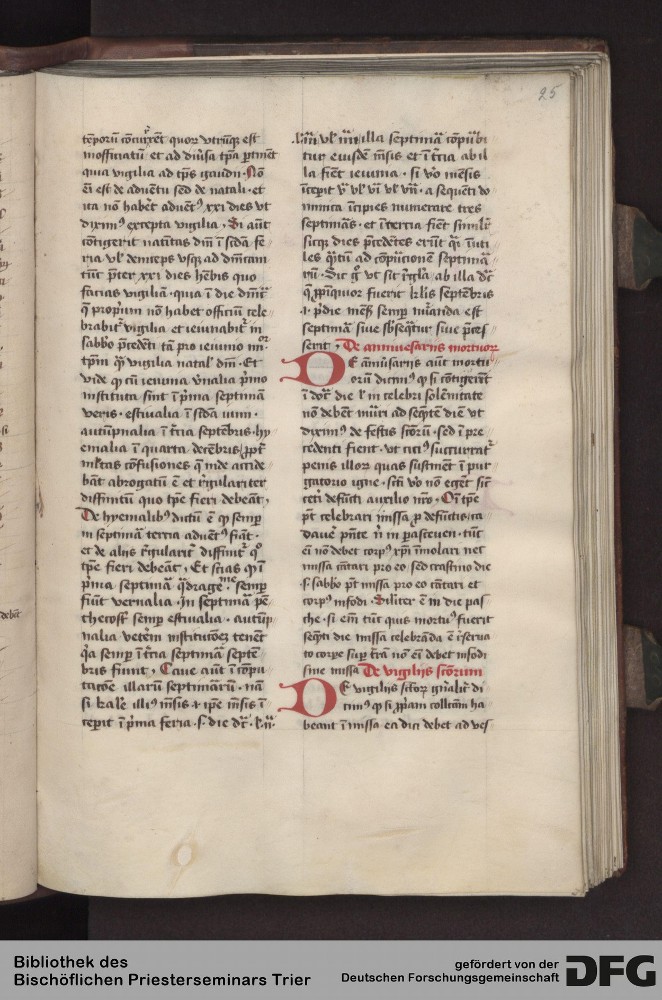 25
tẽporũ cõcurrẽt quor vtrũqꝫ est
inofficiatũ et ad diũsa tpa ptinẽt
quia vigilia ad tps gaudii · Nõ
eĩ est de aduẽtu sed de natali · et
ita nõ habet aduẽtꝰ xxi dies vt
diximꝰ excepta vigilia · Si aũt
cõtigerit natiuitas dñi ĩ scda fe
ria vl' deinceps vsqꝫ ad dñicam
tũc pter xxi dies hẽbis quo
facias vigiliã · quia ĩ die
q̃ propriũ nõ habet officiũ cele
brabit᷑ vigilia et ieiunabit᷑ in
sabbo pcedẽti tã pro ieiunio
tpm q̃ vigilia natal' dñi · Et
vide ꝙ cũ ieiunia v̾nalia pimo
instituta sint ĩ pima septimã
veris · estiualia ĩ scda iunii ·
autũpnalia ĩ t̾cia septẽbris · hy
emalia ĩ quarta decẽbris ꝓpt᷑
ml'tas cõfusiones q̃ inde accide
bãt abrogatũ ẽ et regulariter
diffinitũ quo tpe fieri debeãt ·
De hyemalibꝰ dictũ ẽ ꝙ semp
in septimã tercia aduẽtꝰ fiãt ·
et de alijs regularit᷑ diffinit᷑ qͦ
tpe fieri debeãt · Et scias qͥ ĩ
pima septimã q̃dragẽme semp
fiũt vernalia · In septimã pẽ
thecost᷑ semp estiualia · autũp
nalia veterẽ institucõez tenẽt
q̃a semp ĩ t̾cia septimã septẽ
bris fiunt · Caue aũt ĩ cõpu
tacõe illarũ septimãrũ · nã
si kalẽ illiꝰ mẽsis · i· ipe mẽsis ĩ
cepit ĩ pima feria · s· die dc̃ · l' ii·
l' iii vl' iiii illa septimã cõputabi
tur eiusdẽ mẽsis et ĩ t̾cia ab il
la fiẽt ieiunia · si v̾o mẽsis
ĩcepit v vl' vi vl' vii · a sequẽti do
minica ĩcipies numerare tres
septimãs · et ĩ tercia fiẽt simil'r
sicqꝫ dies pcedẽtes erũt q̃i inuti
les q̃tũ ad cõputacionẽ septimã
rũ · Sit gͦ vt sit regla ab illa dc̃
q̃ ꝓpinquior fuerit kl'is septẽbris
· i· pdie mẽs semp inchoanda est
septimã siue sbsequit᷑ siue pces
serit · De anniuersariis mortuorꝫ
De anniu̾sariis aũt mortu
orũ dicimꝰ ꝙ si cõtigerĩt
ĩ dc̃ die l' in celebri solẽnitate
nõ debẽt mutari ad seqẽte diẽ vt
diximꝰ de festis sctorũ · sed ĩ pre
cedenti fient · vt cicius succurrat᷑
penis illorꝫ quas sustinẽt ĩ pur
gatorio igne · scti v̾o nõ egẽt sic
ceti defũcti auxilio nr̃o · Oĩ tpe
pt celebrari missa ꝓ defũctis ca
dau̾e pñte nisi in pasceuen · tũc
eĩ nõ debet corpꝰ xpi ĩmolari nec
missa cãtari pro eo sed crastino die
s· sabbo pt missa pro eo cãtari et
corpꝰ infodi · Similiter ẽ in die pas
che · si eĩ tũc quis mortuꝰ fuerit
seqẽti die missa celebrãda ẽ et reserua
to corpe sup t̾rã nõ eĩ debet infodi
sine missa De vigilijs sctorum
De vigilijs sctorꝫ gñalit᷑ di
cimus ꝙ si ꝓpiam collectam ha
beant ĩ missa ea dici debet ad ves
Bibliothek des
Bischöflichen Priesterseminars Trier
gefördert von der
Deutschen Forschungsgemeinschaft
DFG